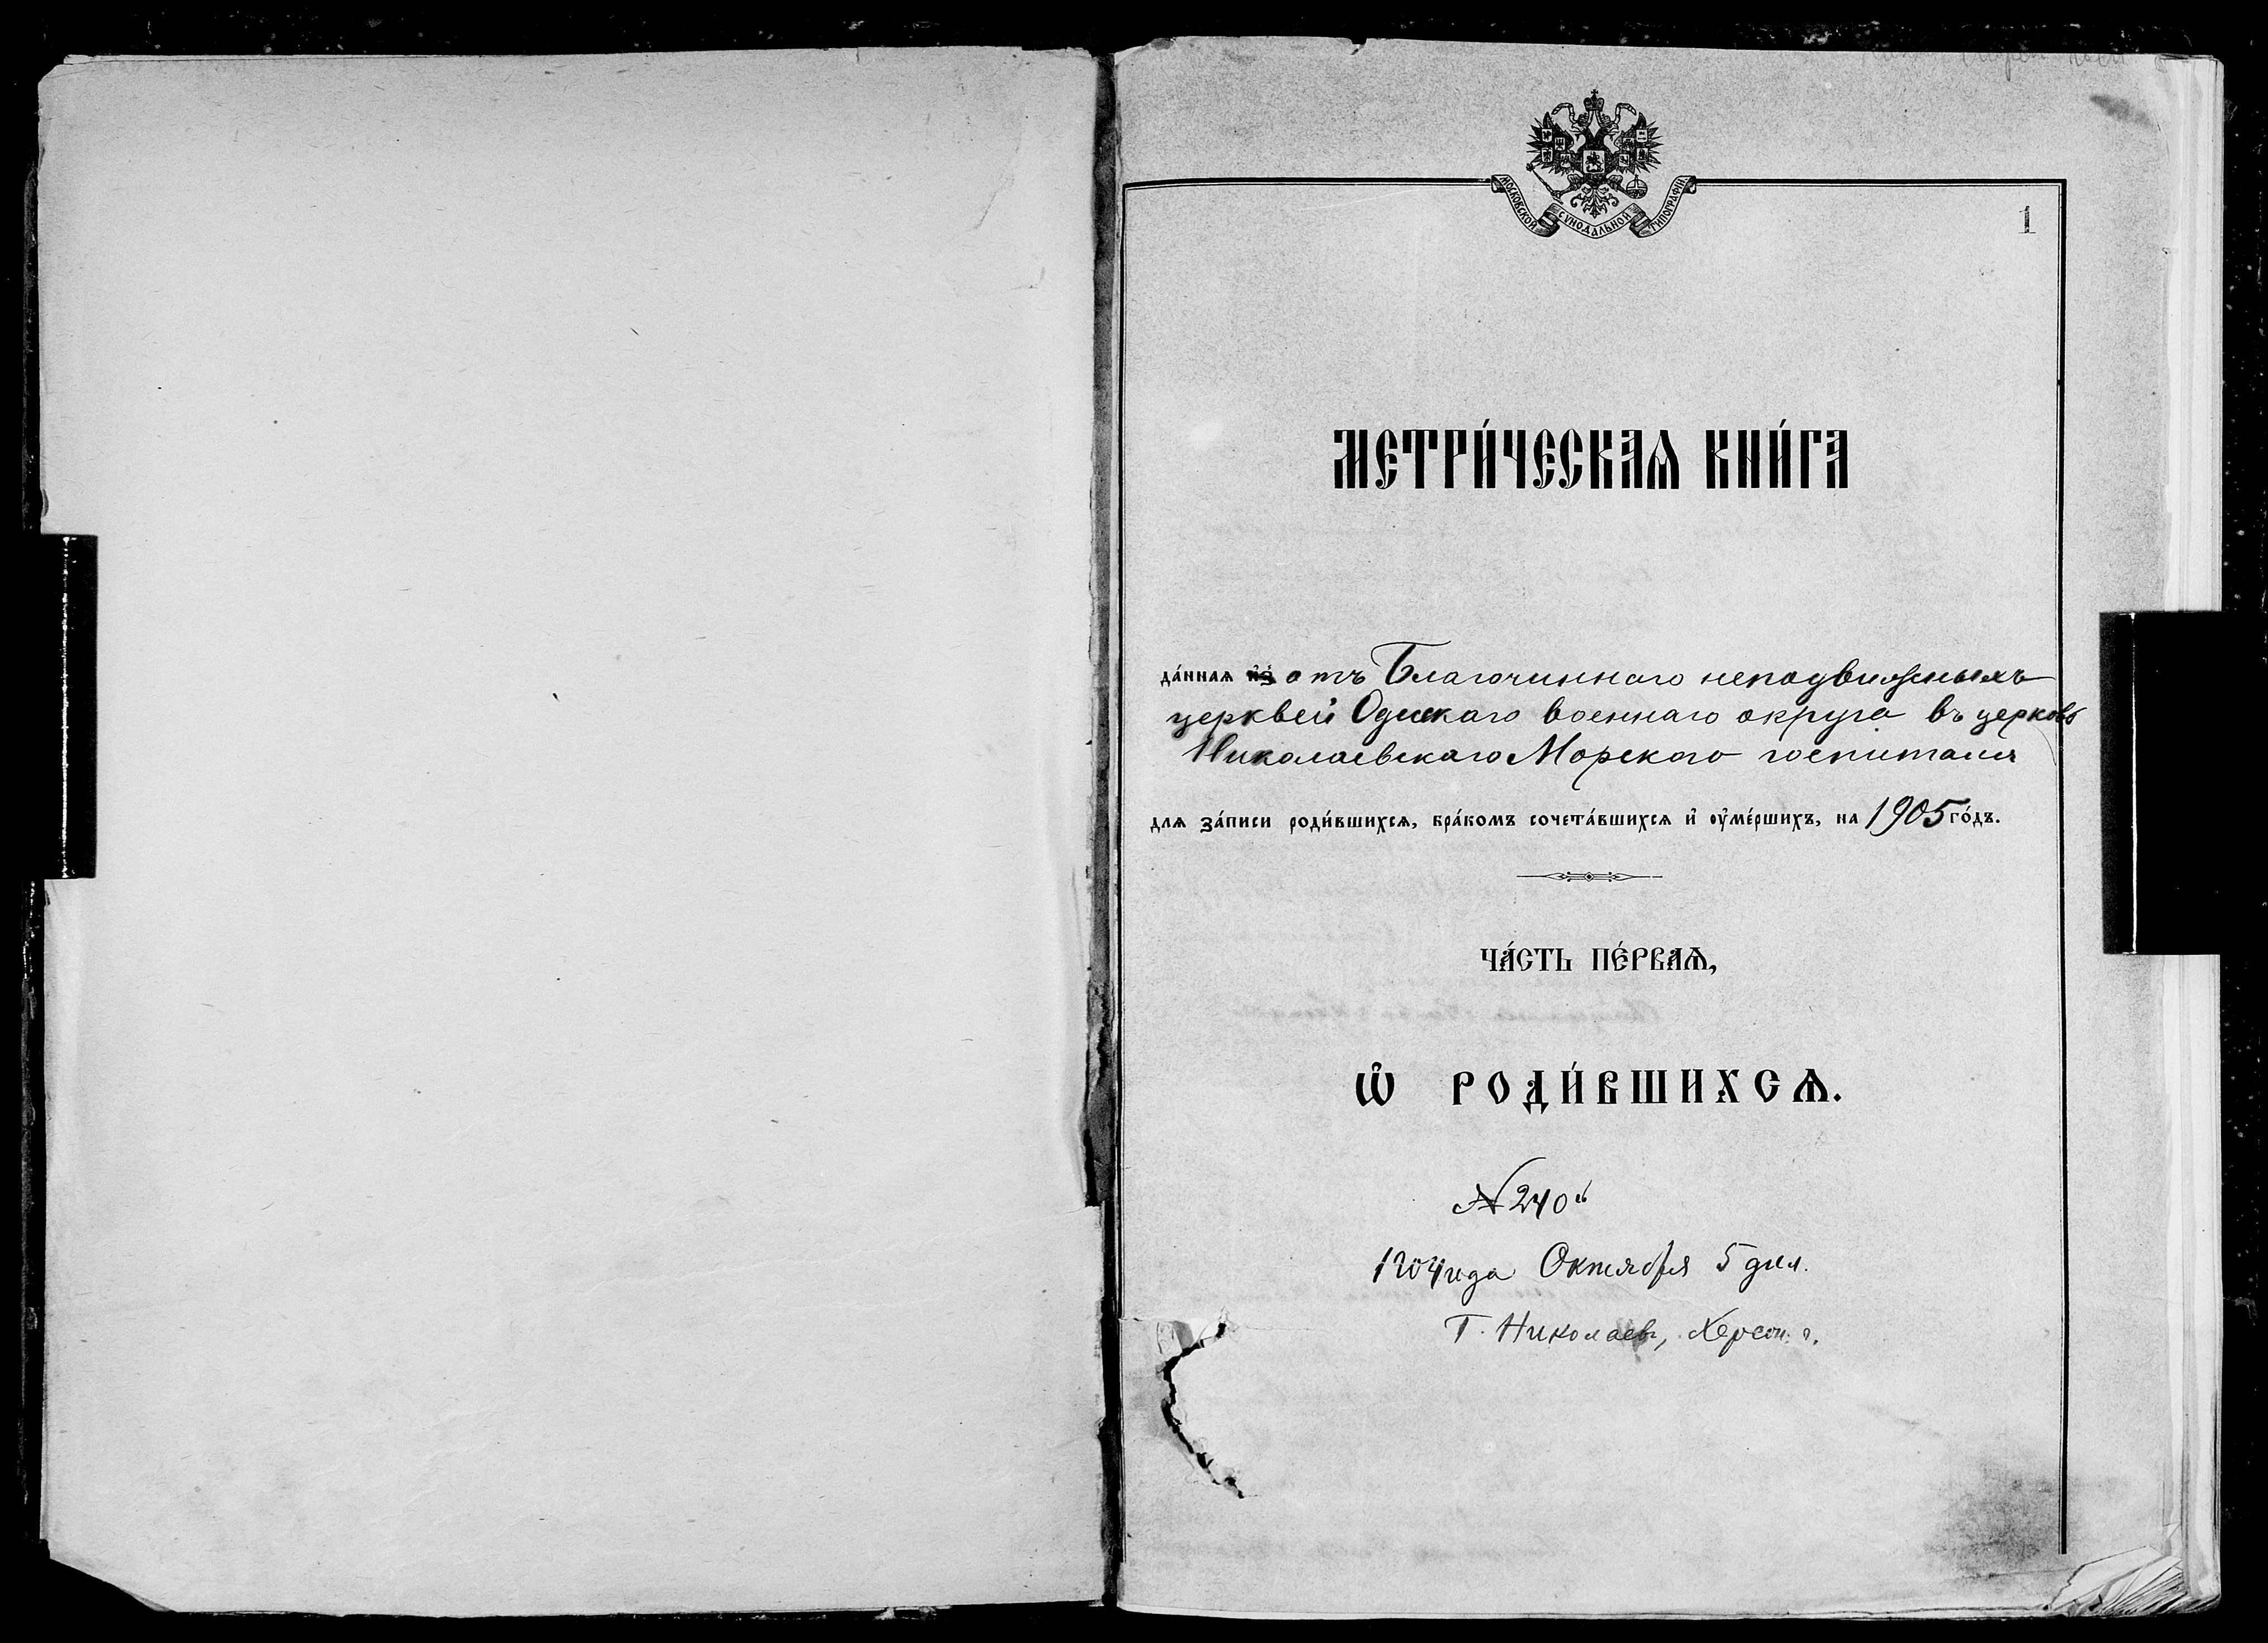 МОСКОВСКОЙ СѴНОДАЛЬНОЙ ТИПОГРАФІИ.
1
МЕТРИ́ЧЕСКАѦ КНИ́ГА
да́ннаѧ отъ Благочиннаго неподвижныхъ
церквей Одесскаго военнаго округа въ церковь
Николаевскаго Морского госпиталя
длѧ за́писи роди́вшихсѧ, бра́комъ сочета́вшихсѧ и҆ ᲂу҆ме́ршихъ, на 1905 го́дъ.
ЧА́СТЬ ПЕ́РВАѦ,
Ѡ҆ РОДИ́ВШИХСѦ.
№ 240
1904 года Октября 5 дня.
Г. Николаевъ, Херсон. г.